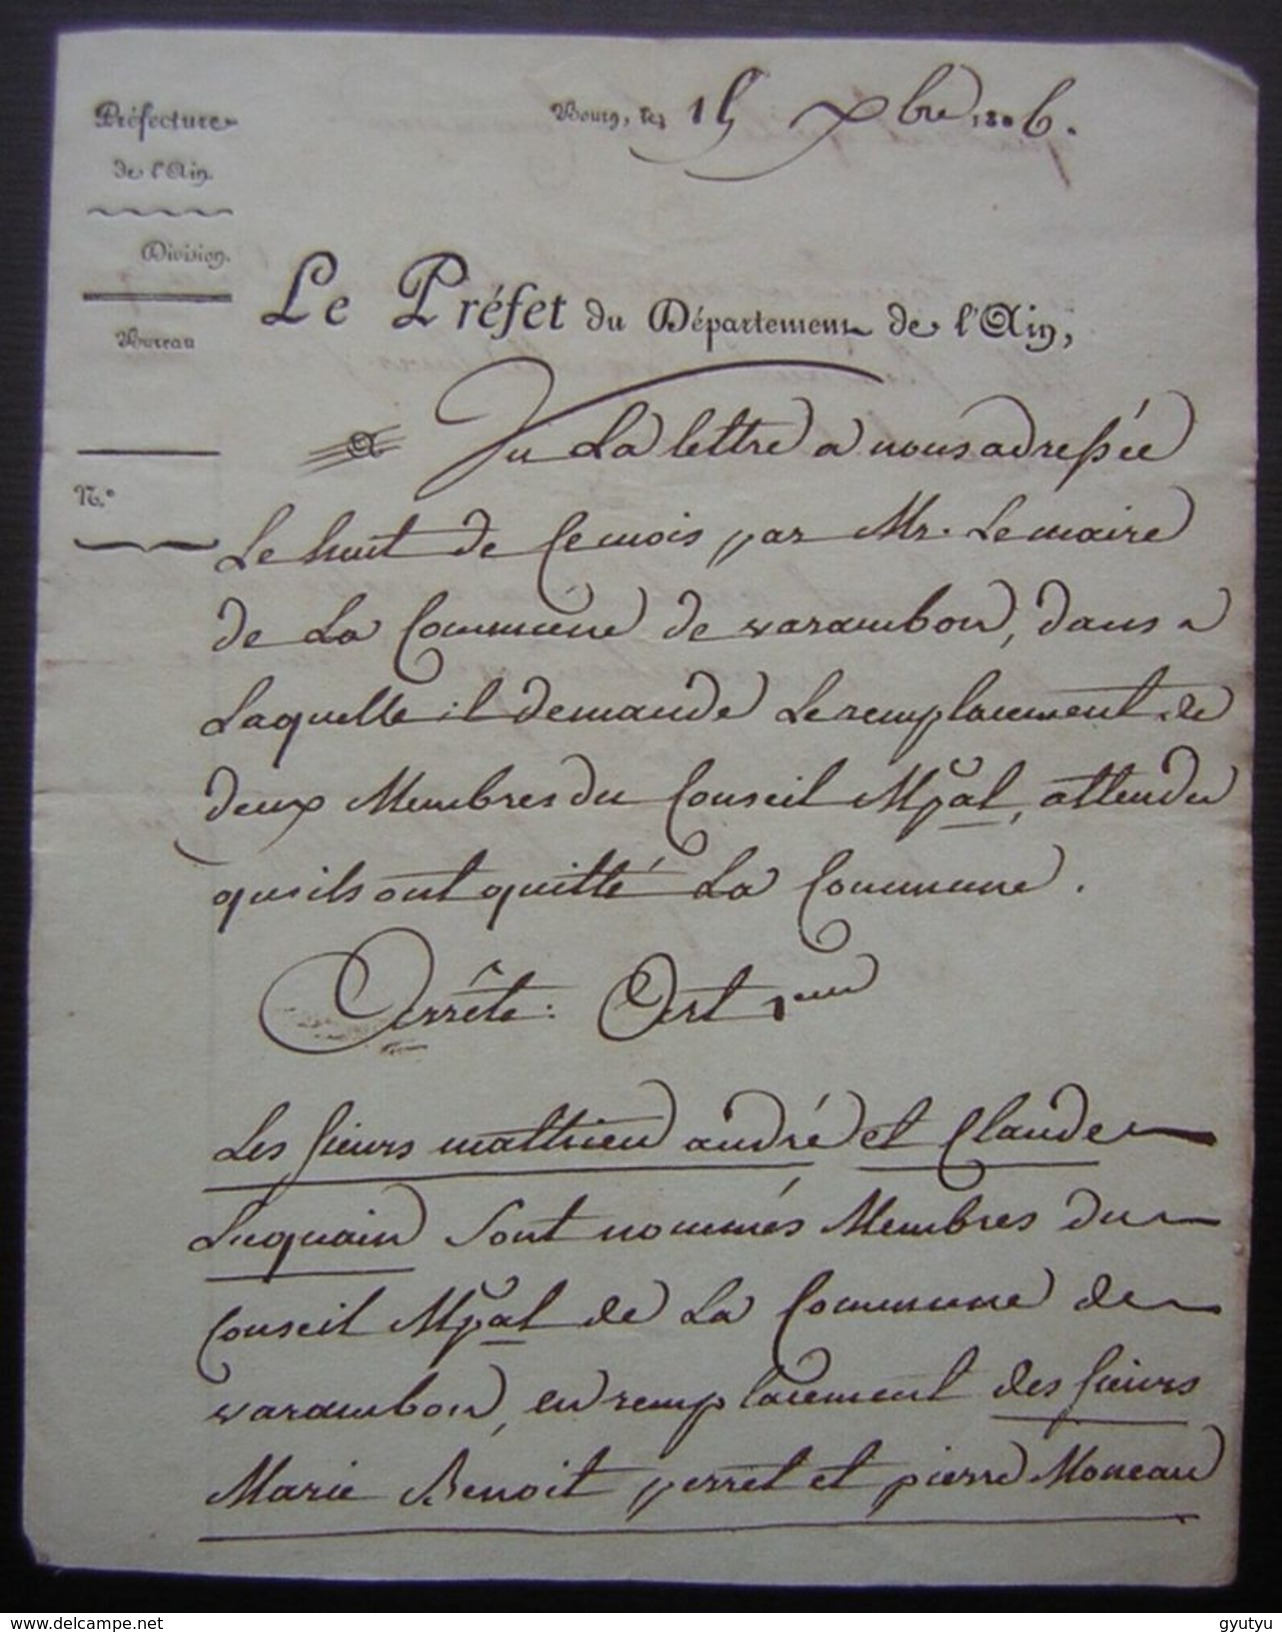 Préfecture
de l'Ain.
Division.
Bureau
N.°
Bourg, le 15 xbre 1806.
Le Préfet du Département de l'Ain,
Vu La lettre a nous adressée
Le huit de Ce mois par Mr. Le maire
de La Commune de varambon, dans
Laquelle il demande Le remplacement de
deux Membres du Conseil Mpal, attendu
qu'ils ont quitté La Commune.
Arrête : Art 1er
Les sieurs mathieu andré et Claude
Luquain sont nommés Membres du
Conseil Mpal de La Commune de
varambon, en remplacement des sieurs
Marie Benoit perret et pierre Moneau
www.delcampe.net
gyutyu